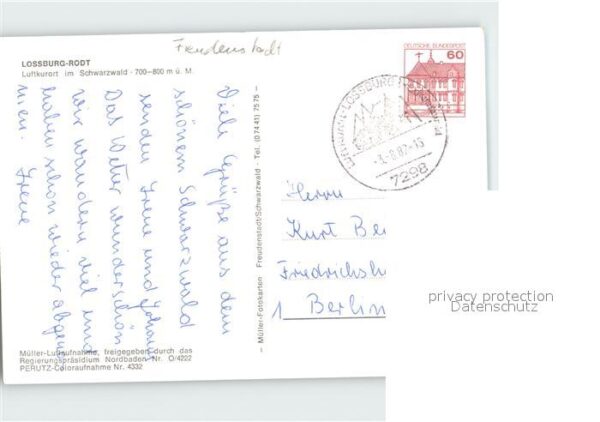 Freudenstadt
LOSSBURG-RODT
Luftkurort im Schwarzwald · 700-800 m ü. M.
Viele Grüße aus dem
schönem Schwarzwald
senden Irene und
Das Wetter wunderschön
wir wandern viel und
haben schon wieder
men. Irene
Müller-Luftaufnahme, freigegeben durch das
Regierungspräsidium Nordbaden Nr. O/4222
PERUTZ-Coloraufnahme Nr. 4332
— Müller-Fotokarten · Freudenstadt/Schwarzwald · Tel. (07441) 7575 —
DEUTSCHE BUNDESPOST
60
LOSSBURG
7298
Herrn
Kurt Be
Friedrichsh
1 Berlin
privacy protection
Datenschutz